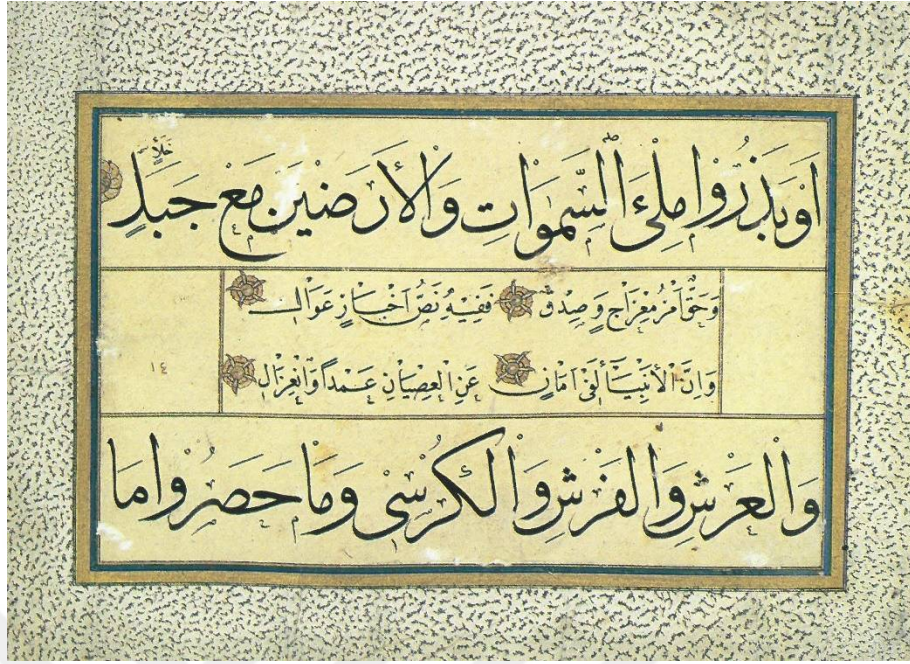 اَوْ يَذَرُوا مِلْئَ السَّمٰوَاتِ وَالْأَرَضِينَ مَعْ جَبَلٍ
وَحَقٌّ اَمْرُ مِعْرَاجٍ وَصِدْقٌ فَفِيهِ نَصُّ اَخْبَارٍ عَوَالِ
وَاِنَّ الْأَنْبِيَاءَ لَفِي اَمَانٍ عَنِ الْعِصْيَانِ عَمْداً وَانْعِزَالِ
١٤
وَالْعَرْشِ وَالْفَرْشِ وَالْكُرْسِي وَمَا حَصَرُوا مَا